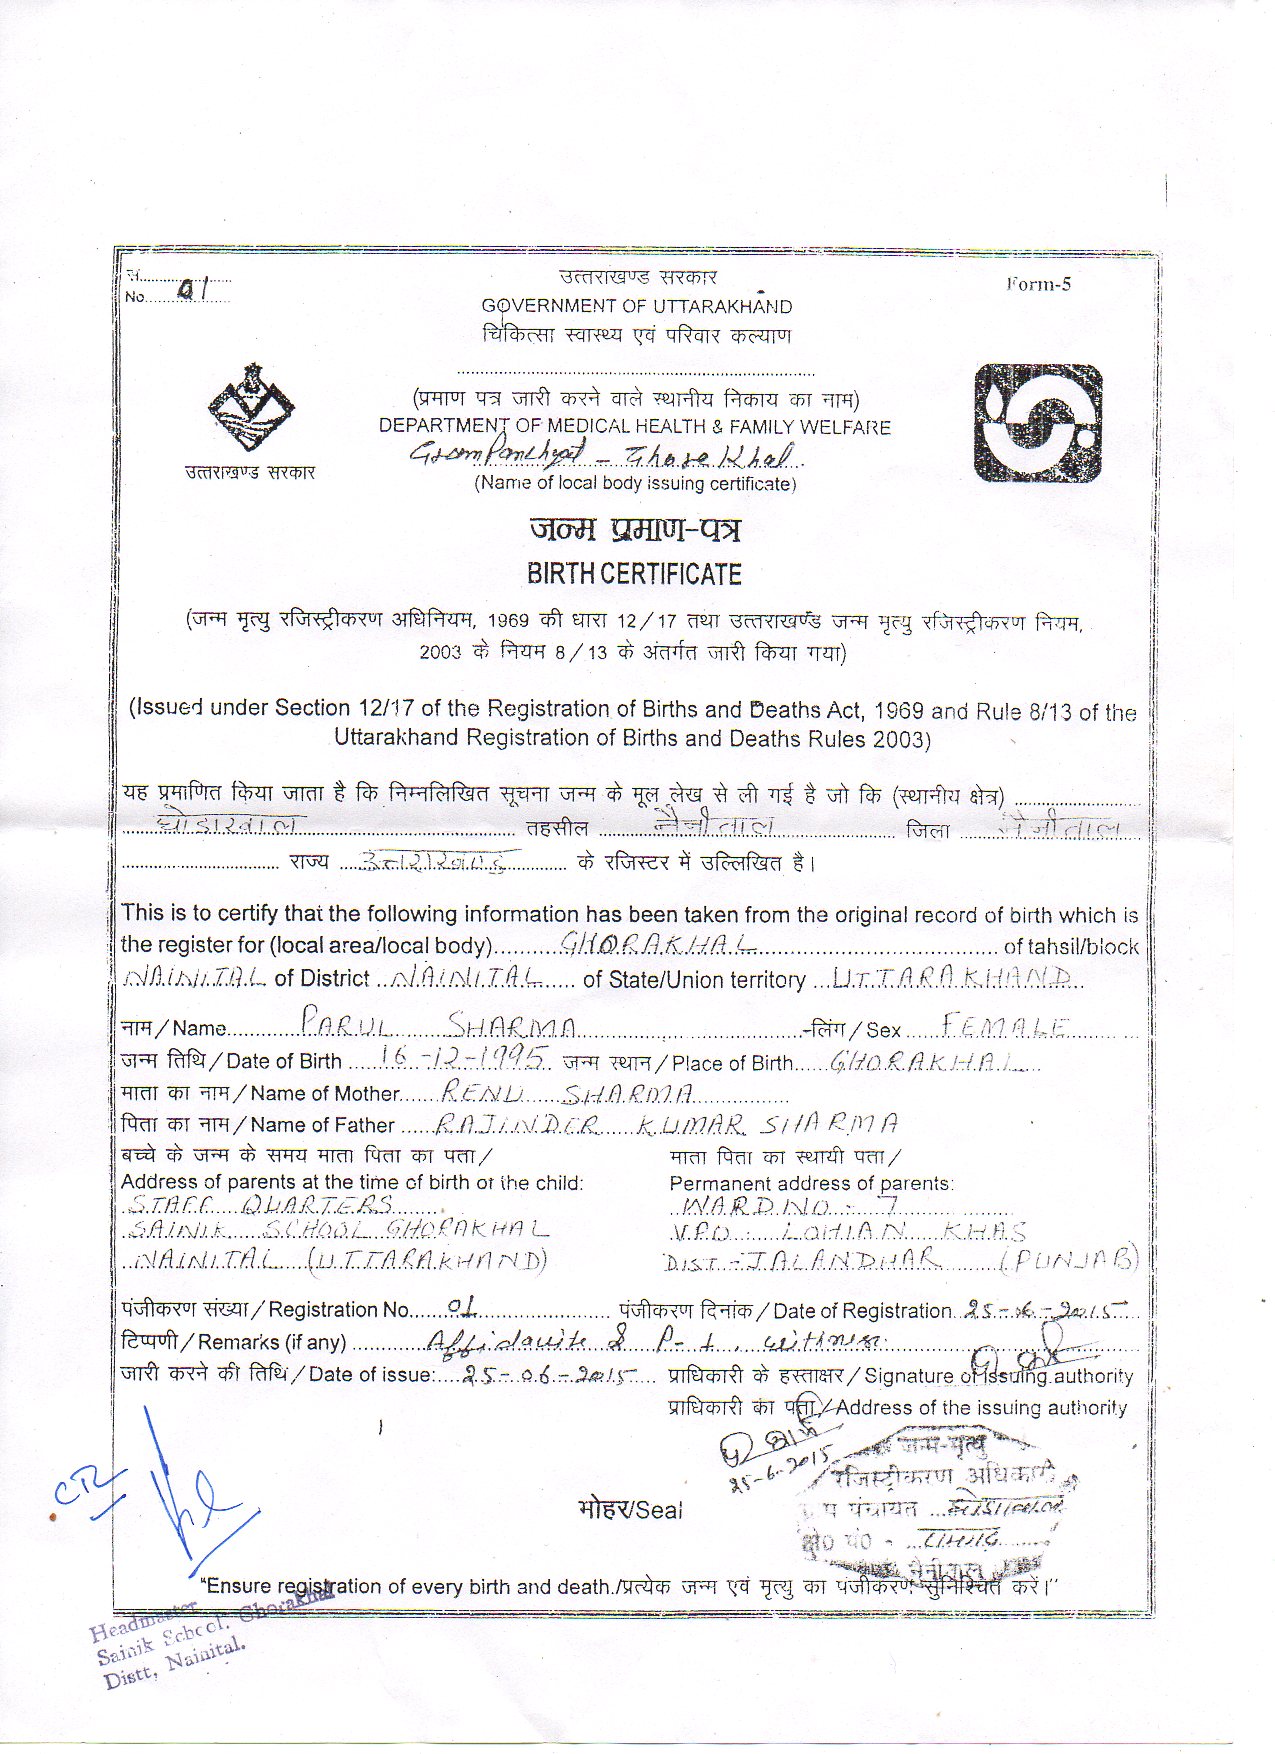 सं.
No. 01
उत्तराखण्ड सरकार
Form-5
GOVERNMENT OF UTTARAKHAND
चिकित्सा स्वास्थ्य एवं परिवार कल्याण
(प्रमाण पत्र जारी करने वाले स्थानीय निकाय का नाम)
DEPARTMENT OF MEDICAL HEALTH & FAMILY WELFARE
उत्तराखण्ड सरकार
(Name of local body issuing certificate)
जन्म प्रमाण-पत्र
BIRTH CERTIFICATE
(जन्म मृत्यु रजिस्ट्रीकरण अधिनियम, 1969 की धारा 12/17 तथा उत्तराखण्ड जन्म मृत्यु रजिस्ट्रीकरण नियम,
2003 के नियम 8/13 के अंतर्गत जारी किया गया)
(Issued under Section 12/17 of the Registration of Births and Deaths Act, 1969 and Rule 8/13 of the
Uttarakhand Registration of Births and Deaths Rules 2003)
यह प्रमाणित किया जाता है कि निम्नलिखित सूचना जन्म के मूल लेख से ली गई है जो कि (स्थानीय क्षेत्र)
घोडाखाल तहसील नैनीताल जिला नैनीताल
राज्य उत्तराखण्ड के रजिस्टर में उल्लिखित है।
This is to certify that the following information has been taken from the original record of birth which is
the register for (local area/local body) GHORAKHAL of tahsil/block
NAINITAL of District NAINITAL of State/Union territory UTTARAKHAND
नाम/Name PARUL SHARMA लिंग/Sex FEMALE
जन्म तिथि/Date of Birth 16-12-1995 जन्म स्थान/Place of Birth GHORAKHAL
माता का नाम/Name of Mother RENU SHARMA
पिता का नाम/Name of Father RAJINDER KUMAR SHARMA
बच्चे के जन्म के समय माता पिता का पता/ माता पिता का स्थायी पता/
Address of parents at the time of birth of the child: Permanent address of parents:
STAFF QUARTERS WARD NO - 7
SAINIK SCHOOL GHORAKHAL V.P.O LOHIAN KHAS
NAINITAL (UTTARAKHAND) DIST - JALANDHAR (PUNJAB)
पंजीकरण संख्या/Registration No. 01 पंजीकरण दिनांक/Date of Registration 25-06-2015
टिप्पणी/Remarks (if any)
जारी करने की तिथि/Date of issue: 25-06-2015 प्राधिकारी के हस्ताक्षर/Signature of issuing authority
प्राधिकारी का पता/Address of the issuing authority
25-6-2015
जन्म-मृत्यु
रजिस्ट्रीकरण अधिकारी
पंचायत
मोहर/Seal
नैनीताल
"Ensure registration of every birth and death./प्रत्येक जन्म एवं मृत्यु का पंजीकरण सुनिश्चित करें।"
Headmaster
Sainik School, Ghorakhal
Distt, Nainital.